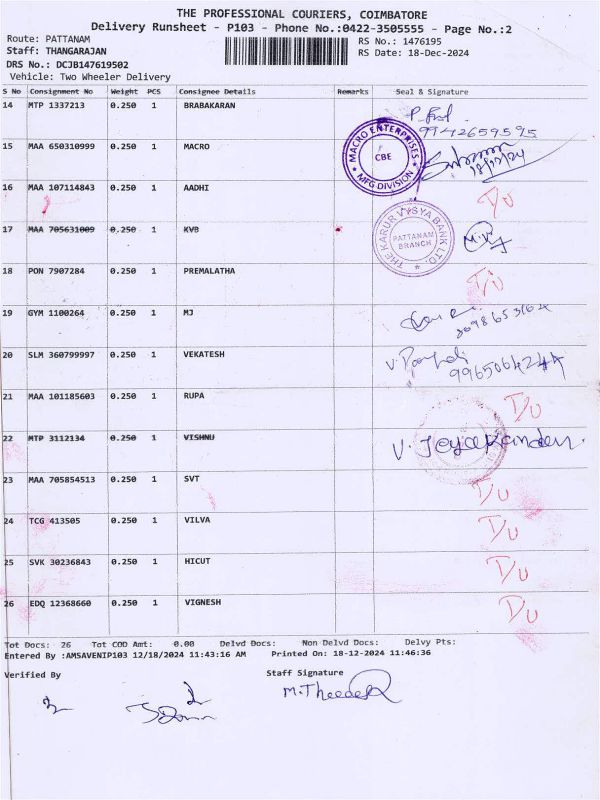 THE PROFESSIONAL COURIERS, COIMBATORE
Delivery Runsheet - P103 - Phone No.:0422-3505555 - Page No.:2
Route: PATTANAM RS No.: 1476195
Staff: THANGARAJAN RS Date: 18-Dec-2024
DRS No.: DCJB147619502
Vehicle: Two Wheeler Delivery
S No Consignment No Weight PCS Consignee Details Remarks Seal & Signature
14 MTP 1337213 0.250 1 BRABAKARAN
9942659595
15 MAA 650310999 0.250 1 MACRO
MACRO ENTERPRISES CBE * MFG-DIVISION *
16 MAA 107114843 0.250 1 AADHI D/U
17 MAA 705631009 0.250 1 KVB
THE KARUR VYSYA BANK LTD. PATTANAM BRANCH
18 PON 7907284 0.250 1 PREMALATHA D/U
19 GYM 1100264 0.250 1 MJ
20 SLM 360799997 0.250 1 VEKATESH
21 MAA 101185603 0.250 1 RUPA D/U
22 MTP 3112134 0.250 1 VISHNU
23 MAA 705854513 0.250 1 SVT D/U
24 TCG 413505 0.250 1 VILVA D/U
25 SVK 30236843 0.250 1 HICUT D/U
26 EDQ 12368660 0.250 1 VIGNESH D/U
Tot Docs: 26 Tot COD Amt: 0.00 Delvd Docs: Non Delvd Docs: Delvy Pts:
Entered By :AMSAVENIP103 12/18/2024 11:43:16 AM Printed On: 18-12-2024 11:46:36
Verified By Staff Signature